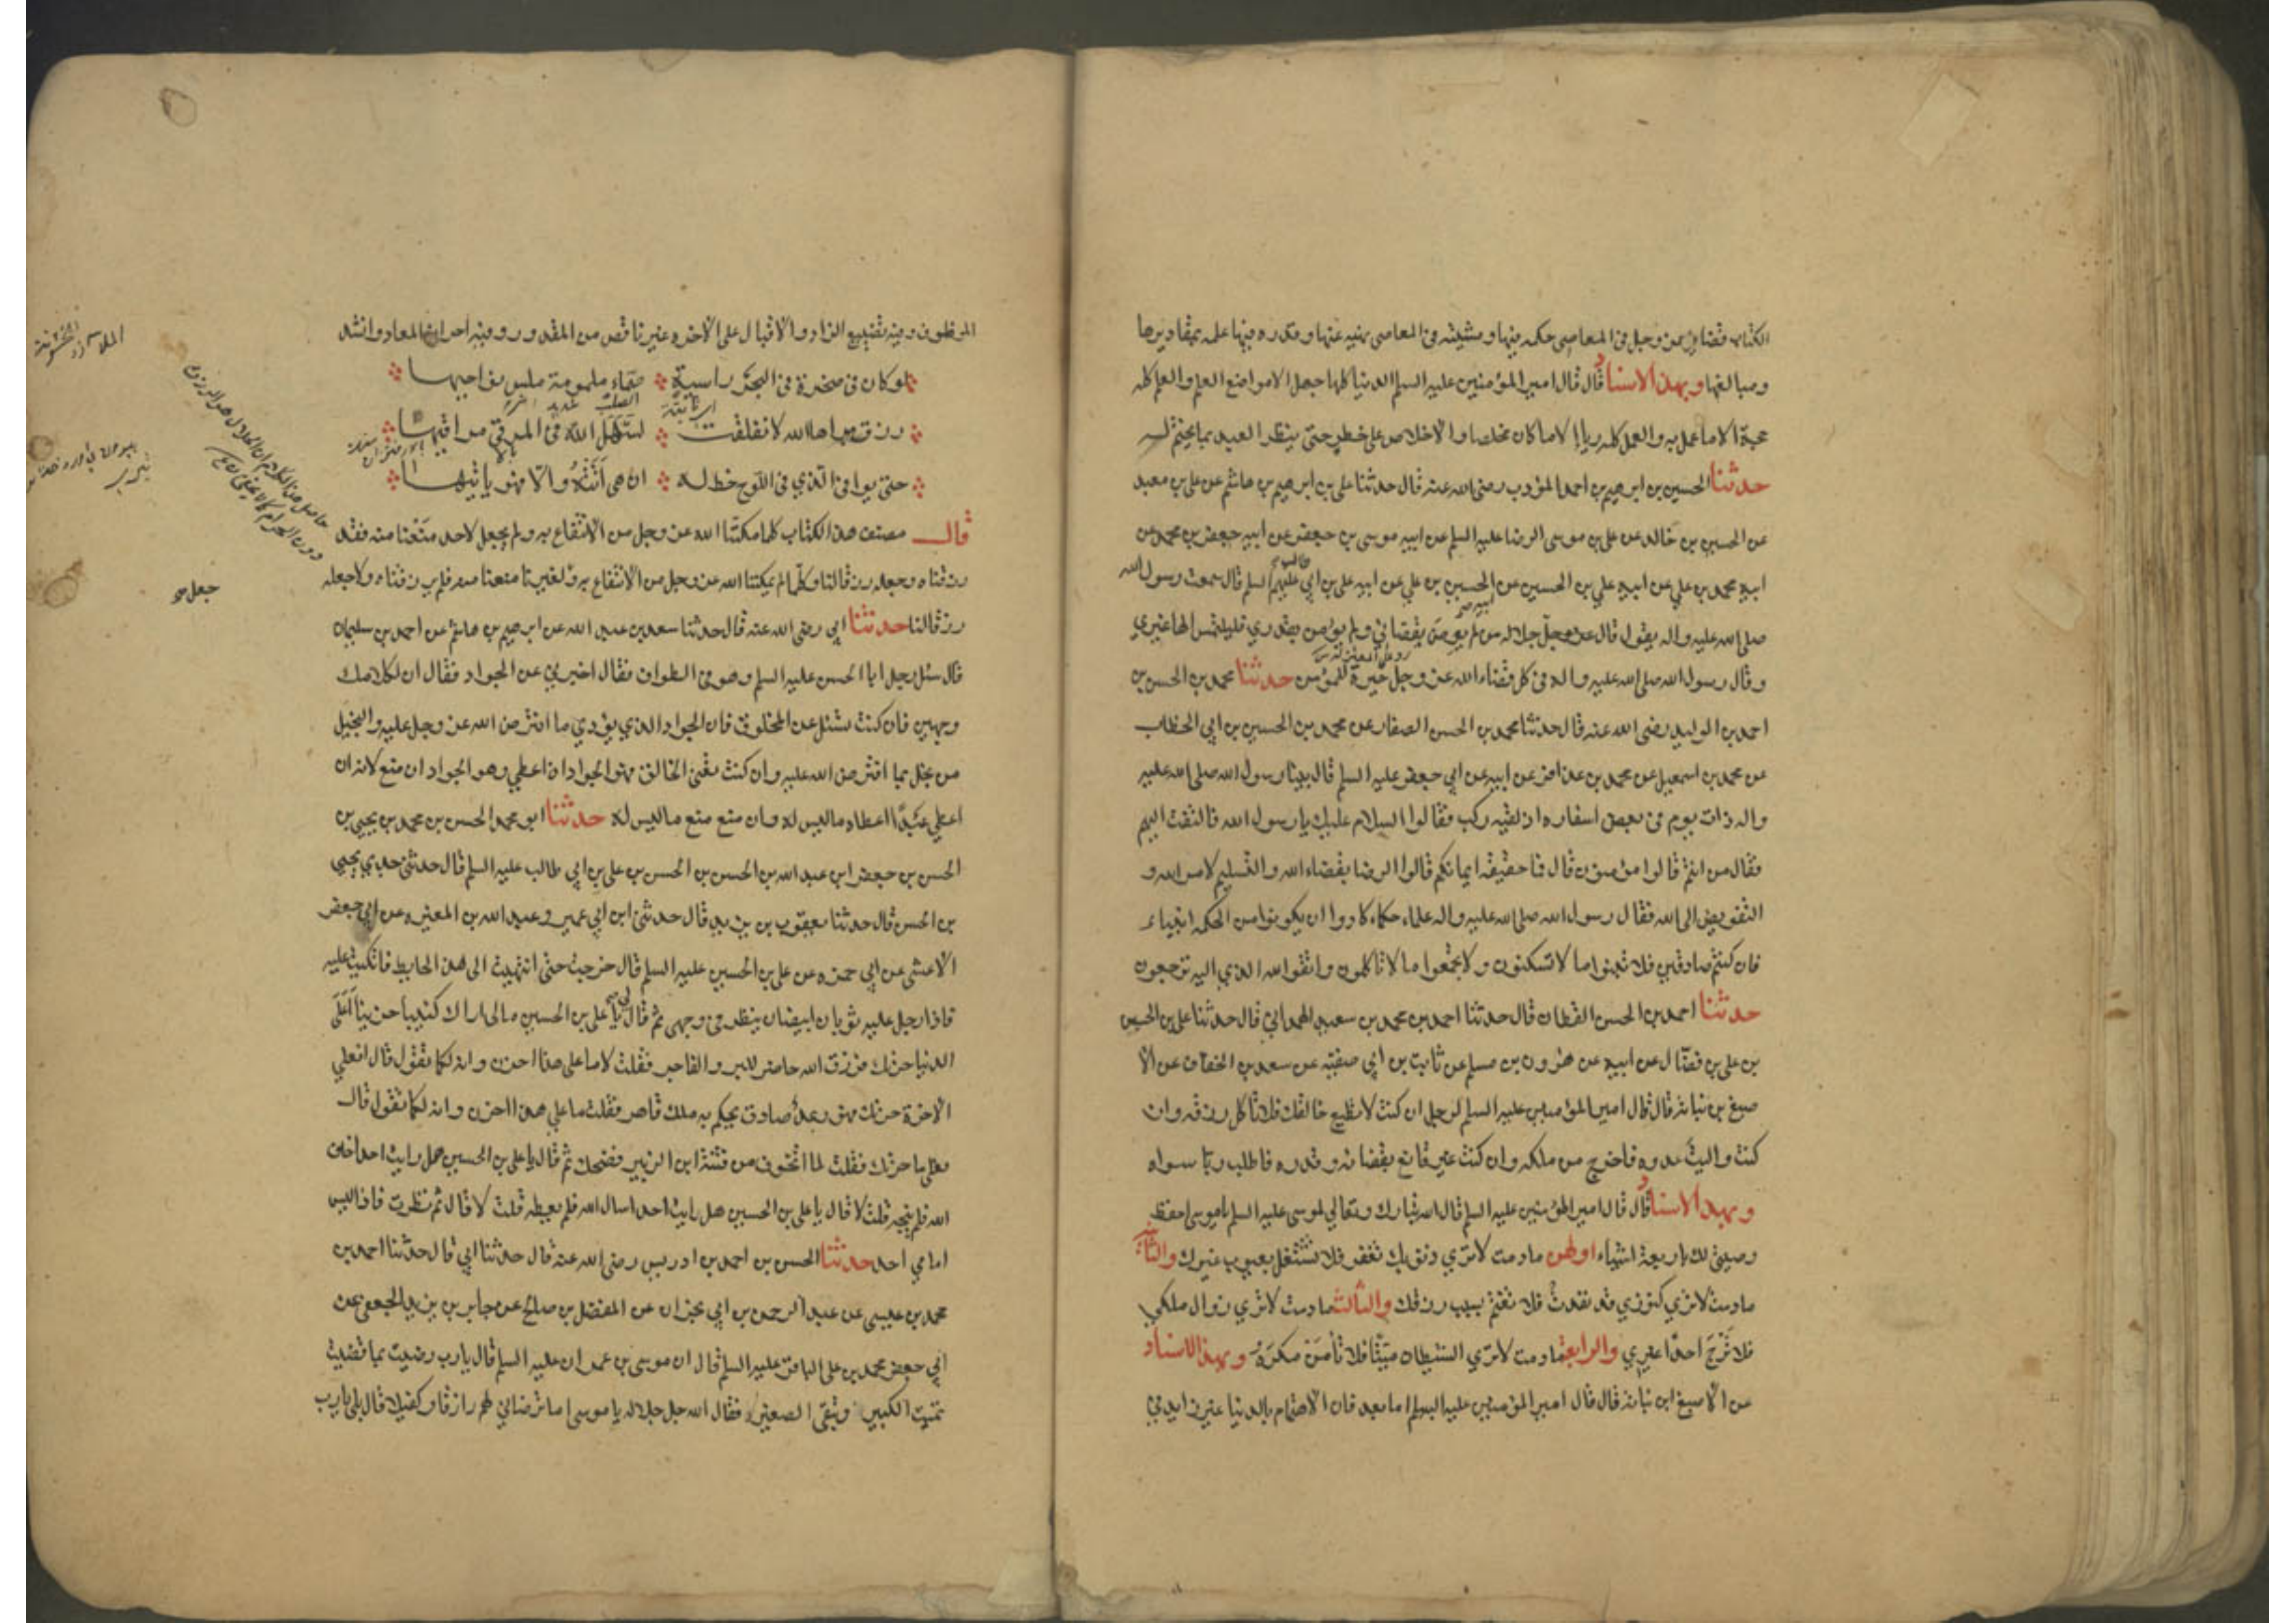 الكتاب قضاء الله عز وجل في المعاصي حكمه فيها ومشيته في المعاصي نهيه عنها وقدره فيها علمه بمقاديرها
ومبالغها وبهذا الاسناد قال قال امير المؤمنين عليه السلم الدنيا كلها جهل الا مواضع العلم والعلم كله
حجة الا ما عمل به والعمل كله رياء الا ما كان مخلصا والاخلاص على خطر حتى ينظر العبد بما يختم له
حدثنا الحسين بن ابرهيم بن احمد المؤدب رضي الله عنه قال حدثنا علي بن ابرهيم بن هاشم عن علي بن معبد
عن الحسين بن خالد عن علي بن موسى الرضا عليه السلم عن ابيه موسى بن جعفر عن ابيه جعفر بن محمد عن
ابيه محمد بن علي عن ابيه علي بن الحسين عن ابيه الحسين بن علي عن ابيه علي بن ابي طالب عليهم السلم قال سمعت رسول الله
صلى الله عليه واله يقول قال الله جل جلاله من لم يرض بقضائي ولم يؤمن بقدري فليلتمس الها غيري
وقال رسول الله صلى الله عليه واله في كل قضاء الله عز وجل خيرة للمؤمن حدثنا محمد بن الحسن بن
احمد بن الوليد رضي الله عنه قال حدثنا محمد بن الحسن الصفار عن محمد بن الحسين بن ابي الخطاب
عن محمد بن اسمعيل عن محمد بن عذافر عن ابيه عن ابي جعفر عليه السلم قال بينا رسول الله صلى الله عليه
واله ذات يوم في بعض اسفاره اذ لقيه ركب فقالوا السلام عليك يا رسول الله فالتفت اليهم
فقال من انتم قالوا مؤمنون قال فما حقيقة ايمانكم قالوا الرضا بقضاء الله والتسليم لامر الله و
التفويض الى الله فقال رسول الله صلى الله عليه واله علماء حكماء كادوا ان يكونوا من الحكمة انبياء
فان كنتم صادقين فلا تبنوا ما لا تسكنون ولا تجمعوا ما لا تاكلون واتقوا الله الذي اليه ترجعون
حدثنا احمد بن الحسن القطان قال حدثنا احمد بن محمد بن سعيد الهمداني قال حدثنا علي بن الحسن
بن علي بن فضال عن ابيه عن هرون بن مسلم عن ثابت بن ابي صفية عن سعد بن الخفاف عن الا
صبغ بن نباتة قال قال امير المؤمنين عليه السلم لرجل ان كنت لا تطيع خالقك فلا تاكل رزقه وان
كنت واليت عدوه فاخرج من ملكه وان كنت غير قانع بقضائه وقدره فاطلب ربا سواه
وبهذا الاسناد قال قال امير المؤمنين عليه السلم قال الله تبارك وتعالى لموسى عليه السلم يا موسى احفظ
وصيتي لك باربعة اشياء اولهن ما دمت لا ترى ذنوبك تغفر فلا تشتغل بعيوب غيرك والثانية
ما دمت لا ترى كنوزي قد نفدت فلا تغتم بسبب رزقك والثالثة ما دمت لا ترى زوال ملكي
فلا ترج احدا غيري والرابعة ما دمت لا ترى الشيطان ميتا فلا تأمن مكره وبهذا الاسناد
عن الاصبغ ابن نباتة قال قال امير المؤمنين عليه السلم اما بعد فان الاهتمام بالدنيا غير زايد في
الموظوف وفيه تضييع الزاد والاقبال على الاخرة غير ناقص من المقدور وفيه احراز المعاد وانشد
لو كان في صخرة في البحر راسية صماء ملمومة ملس نواحيها
رزق لنفس براها الله لانفلقت
لسهل الله في المرقى مراقيها
حتى يوافي الذي في اللوح خط له ان هي اتته والا فهو ياتيها
قال مصنف هذا الكتاب كلما مكننا الله عز وجل من الانتفاع به ولم يجعل لاحد منعنا منه فقد
رزقناه وجعله رزقا لنا وكلما لم يمكننا الله عز وجل من الانتفاع به وجعل لغيرنا منعنا منه فلم يرزقناه ولا جعله
رزقا لنا حدثنا ابي رضي الله عنه قال حدثنا سعد بن عبد الله عن ابرهيم بن هاشم عن احمد بن سليمان
قال سئل رجل ابا الحسن عليه السلم وهو في الطواف فقال اخبرني عن الجواد فقال ان لكلامك
وجهين فان كنت تسئل عن المخلوق فان الجواد الذي يؤدي ما افترض الله عز وجل عليه والبخيل
من بخل بما افترض الله عليه وان كنت تعني الخالق فهو الجواد ان اعطى وهو الجواد ان منع لانه ان
اعطى عبدا اعطاه ما ليس له وان منع منع ما ليس له حدثنا ابو محمد الحسن بن محمد بن يحيى بن
الحسن بن جعفر ابن عبد الله بن الحسن بن الحسن بن علي بن ابي طالب عليه السلم قال حدثني جدي يحيى
بن الحسن قال حدثنا يعقوب بن يزيد قال حدثني ابن ابي عمير وعبد الله بن المغيرة عن ابي جعفر
الاعشى عن ابي حمزه عن علي بن الحسين عليه السلم قال خرجت حتى انتهيت الى هذا الحايط فاتكيت عليه
فاذا رجل عليه ثوبان ابيضان ينظر في وجهي ثم قال لي يا علي بن الحسين مالي اراك كئيبا حزينا أعلى
الدنيا حزنك فرزق الله حاضر للبر والفاجر فقلت لا ما على هذا احزن وانه لكما تقول قال افعلى
الاخرة حزنك فهو وعد صادق يحكم به ملك قاهر فقلت ما على هذا احزن وانه لكما تقول قال
فعلى ما حزنك فقلت لما اتخوف من فتنة ابن الزبير فضحك ثم قال يا علي بن الحسين هل رايت احدا خاف
الله فلم ينجه قلت لا قال يا علي بن الحسين هل رايت احدا سال الله فلم يعطه قلت لا قال ثم نظرت فاذا ليس
امامي احد حدثنا الحسن بن احمد بن ادريس رضي الله عنه قال حدثنا ابي قال حدثنا احمد بن
محمد بن عيسى عن عبد الرحمن بن ابي نجران عن المفضل بن صالح عن جابر بن يزيد الجعفي عن
ابي جعفر محمد بن علي الباقر عليه السلم قال ان موسى بن عمران عليه السلم قال يا رب رضيت بما قضيت
تميت الكبير وتبقي الصغير فقال الله جل جلاله يا موسى اما ترضاني لهم رازقا وكفيلا قال بلى يا رب
جعل